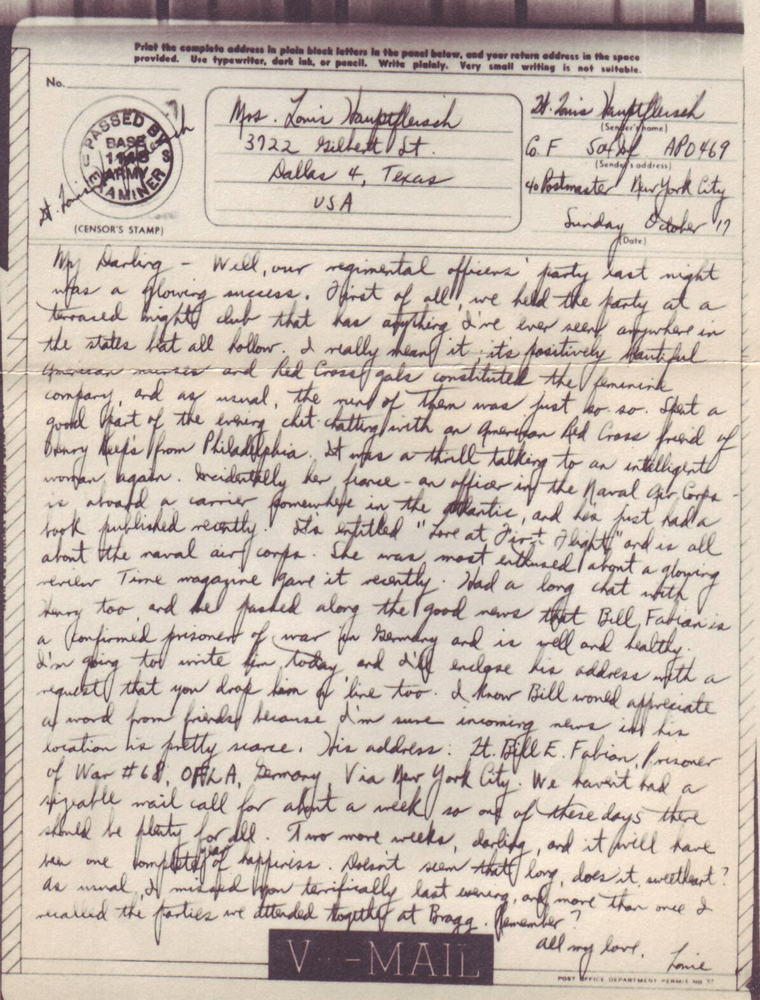 Print the complete address in plain block letters in the panel below, and your return address in the space
provided. Use typewriter, dark ink, or pencil. Write plainly. Very small writing is not suitable.
No.
PASSED BY
BASE
ARMY
EXAMINER
(CENSOR'S STAMP)
Mrs. Louis Hauptfleisch
3722 Gilbert St.
Dallas 4, Texas
USA
Lt. Louis Hauptfleisch
(Sender's name)
Co. F APO 469
(Sender's address)
c/o Postmaster New York City
Sunday October 17
(Date)
My Darling - Well, our regimental officers' party last night
was a glowing success. First of all, we held the party at a
terraced night club that has anything I've ever seen anywhere in
the states beat all hollow. I really mean it; it's positively beautiful
American nurses and Red Cross gals constituted the feminine
company, and as usual, the run of them was just so-so. Spent a
good part of the evening chit-chatting with an American Red Cross friend of
Henry Keep's from Philadelphia. It was a thrill talking to an intelligent
woman again. Incidentally her fiance - an officer in the Naval Air Corps -
is aboard a carrier somewhere in the atlantic, and he's just had a
book published recently. It's entitled "Love at First Flight" and is all
about the naval air corps. She was most enthused about a glowing
review Time magazine gave it recently. Had a long chat with
Henry too and he passed along the good news that Bill Fabian is
a confirmed prisoner of war in Germany and is well and healthy.
I'm going to write him today and I'll enclose his address with a
request that you drop him a line too. I know Bill would appreciate
a word from friends because I'm sure incoming news in his
location is pretty scarce. His address: Lt. Bill E. Fabian, Prisoner
of War #68, Germany, Via New York City. We haven't had a
sizeable mail call for about a week so one of these days there
should be plenty for all. Two more weeks, darling, and it will have
been one complete year of happiness. Doesn't seem that long, does it, sweetheart?
As usual, I missed you terrifically last evening, and more than once I
recalled the parties we attended together at Bragg. Remember?
All my love,
Louie
V···-MAIL
POST OFFICE DEPARTMENT PERMIT NO